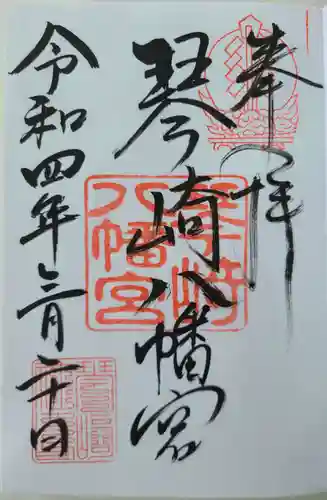 奉拝
琴崎八幡宮
令和四年三月二十日
琴崎八幡宮